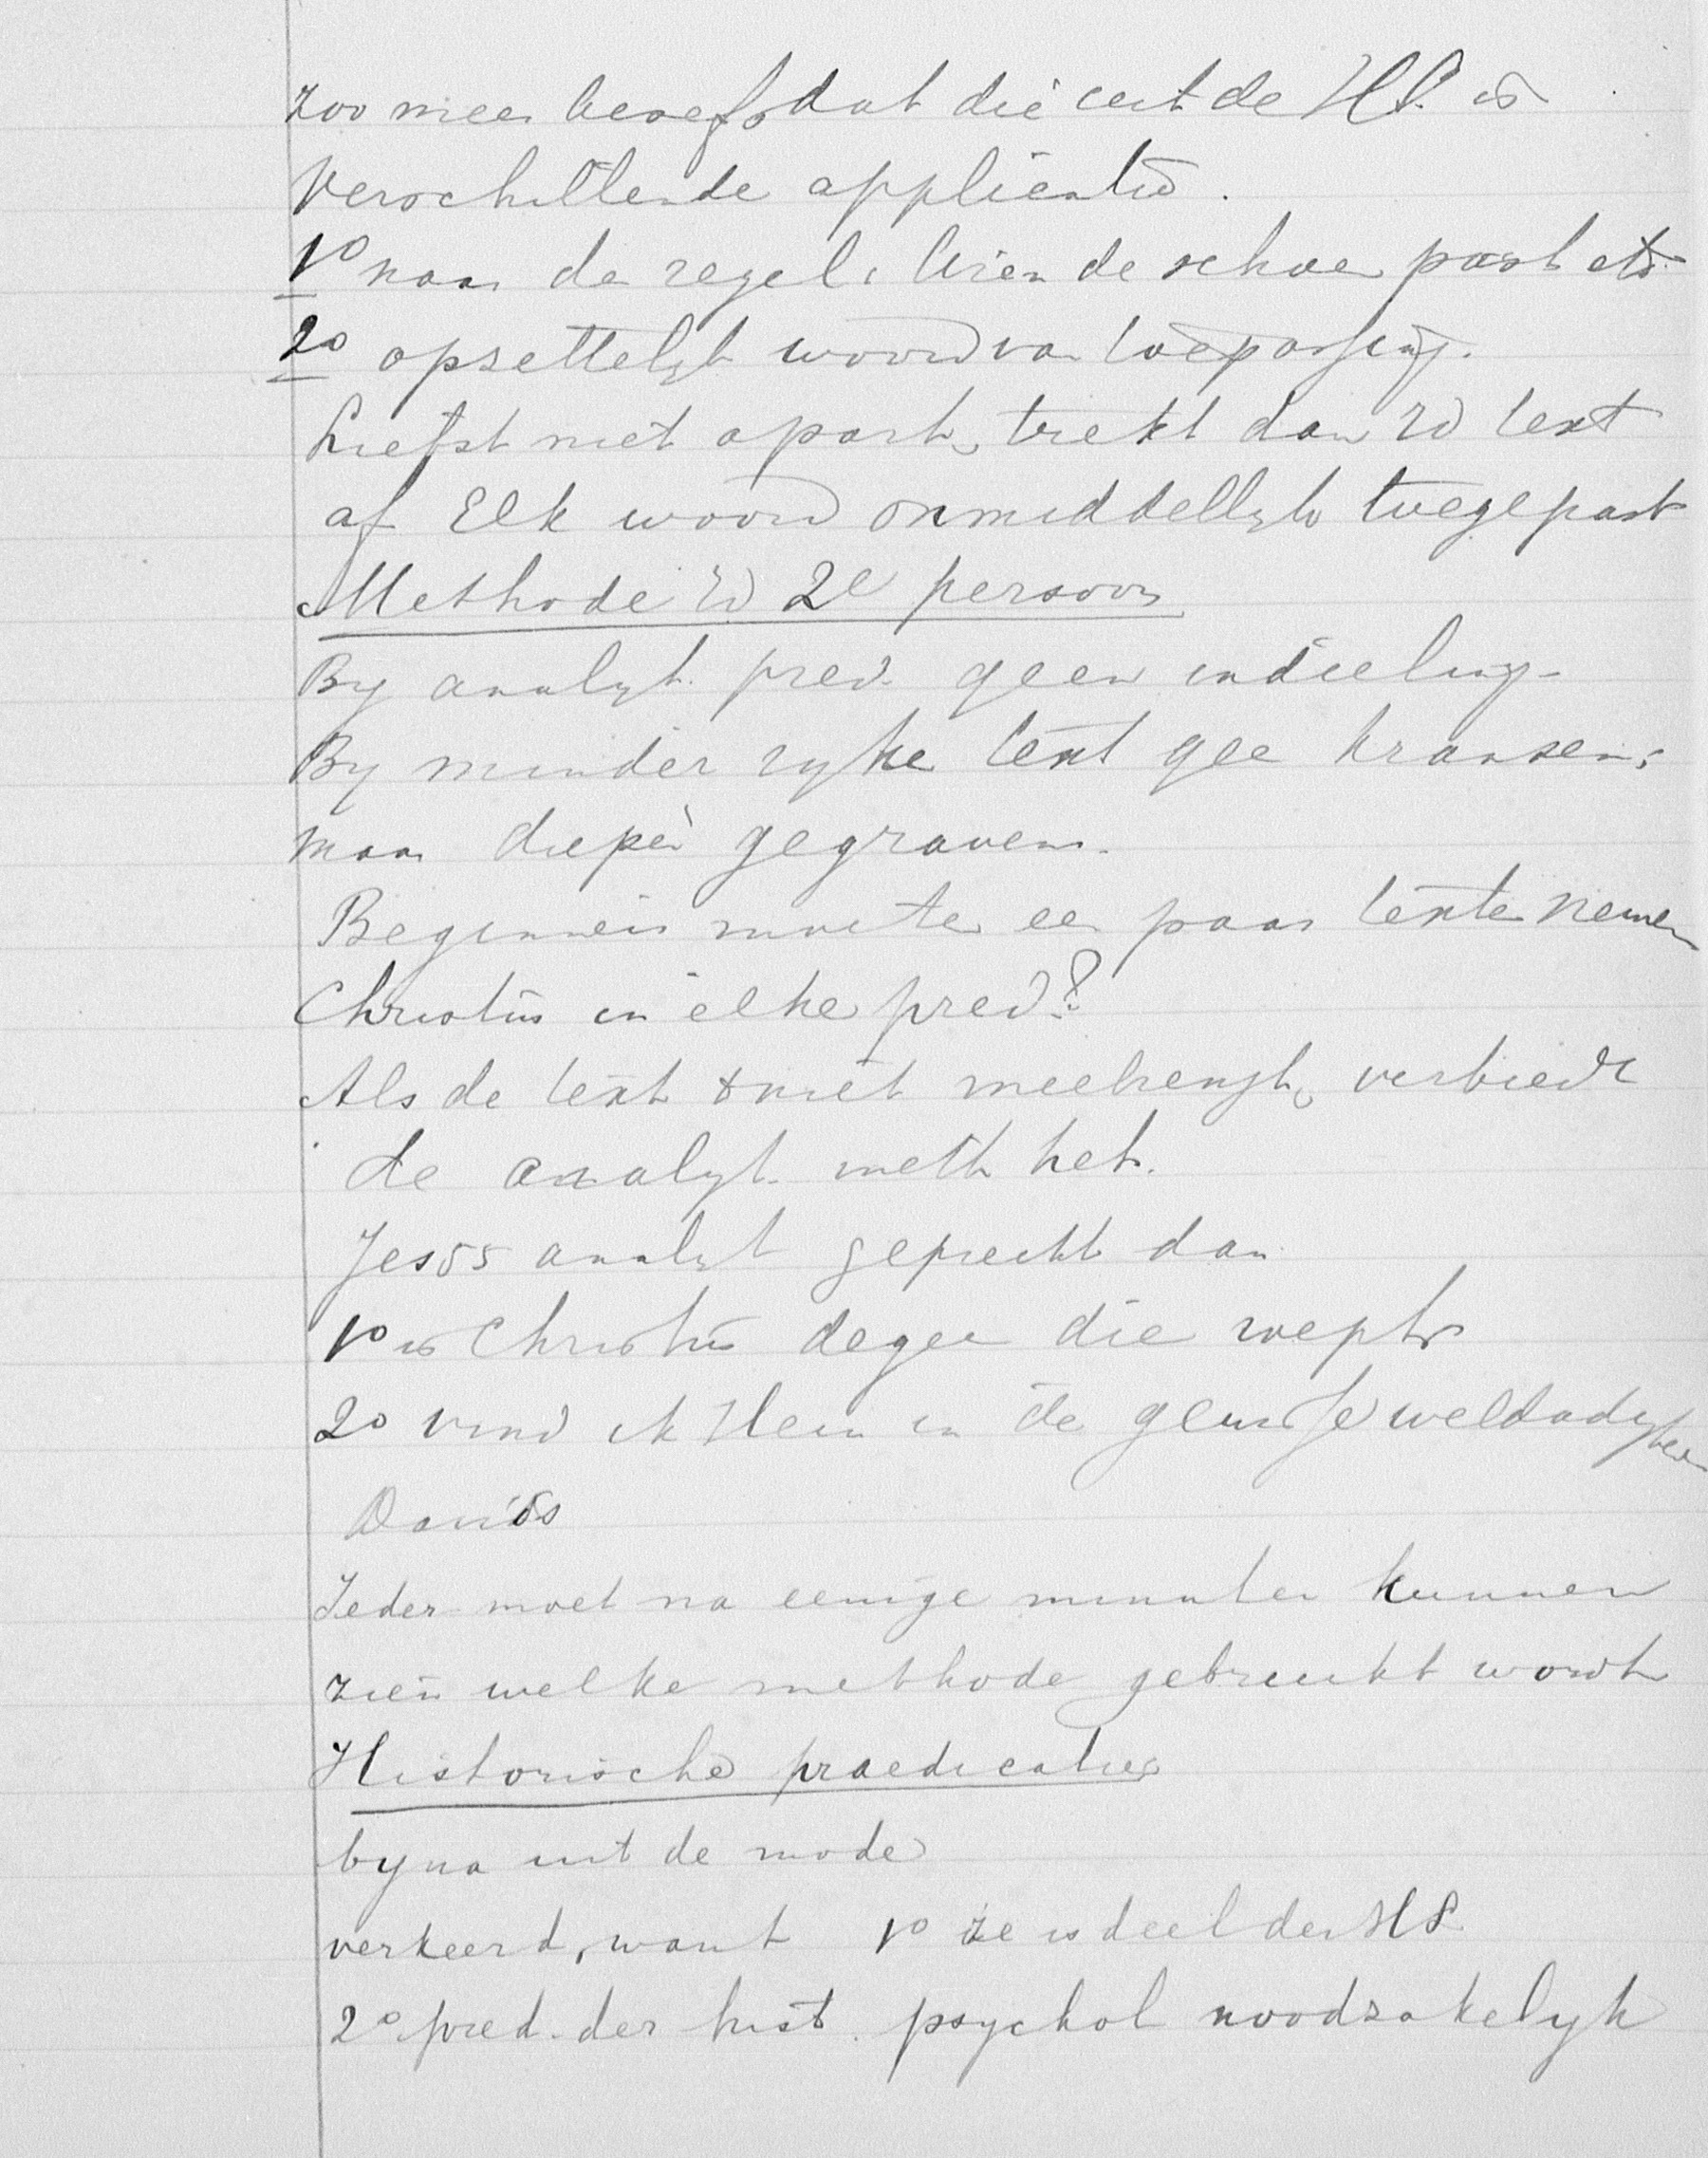 zoo meer beseft dat die uit de H.S. is
Verschillende applicatie.
1o naar de regel: Wien de schoen past etc
2o opzettelyk woord van toepassing.
Liefst niet apart, trekt dan vd text
af Elk woord onmiddellyk toegepast
Methode vd 2e persoon
By analyt. pred. geen indeeling.
By minder ryke text gee kransen,
maar dieper gegraven.
Beginners moeten een paar texten nemen
Christus in elke pred?
Als de text t niet meebrengt, verbiedt
de analyt. meth het.
Jes 55 analyt gepreekt dan
1o is Christus degee die roept
2o vind ik Hem in de gewisse weldadigheden
Davids
Ieder moet na eenige minuten kunnen
zien welke methode gebruikt wordt
Historische praedicaties
byna uit de mode
verkeerd, want 1o ze is deel der HS
2o pred. der hist. psychol noodzakelyk